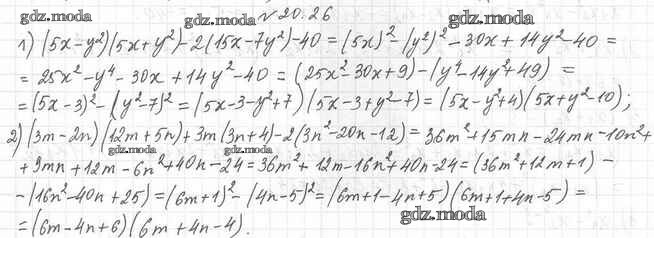 gdz.moda gdz.moda № 20.26 gdz.moda
1) (5x-y²)(5x+y²)-2(15x-7y²)-40 = (5x)²-(y²)²-30x+14y²-40 =
= 25x²-y⁴-30x+14y²-40 = (25x²-30x+9)-(y⁴-14y²+49) =
= (5x-3)²-(y²-7)² = (5x-3-y²+7)(5x-3+y²-7) = (5x-y²+4)(5x+y²-10);
2) (3m-2n)(12m+5n)+3m(3n+4)-2(3n²-20n-12) = 36m²+15mn-24mn-10n²+
gdz.moda gdz.moda
+9mn+12m-6n²+40n-24 = 36m²+12m-16n²+40n-24 = (36m²+12m+1)-
-(16n²-40n+25) = (6m+1)²-(4n-5)² = (6m+1-4n+5)(6m+1+4n-5) =
gdz.moda
= (6m-4n+6)(6m+4n-4).